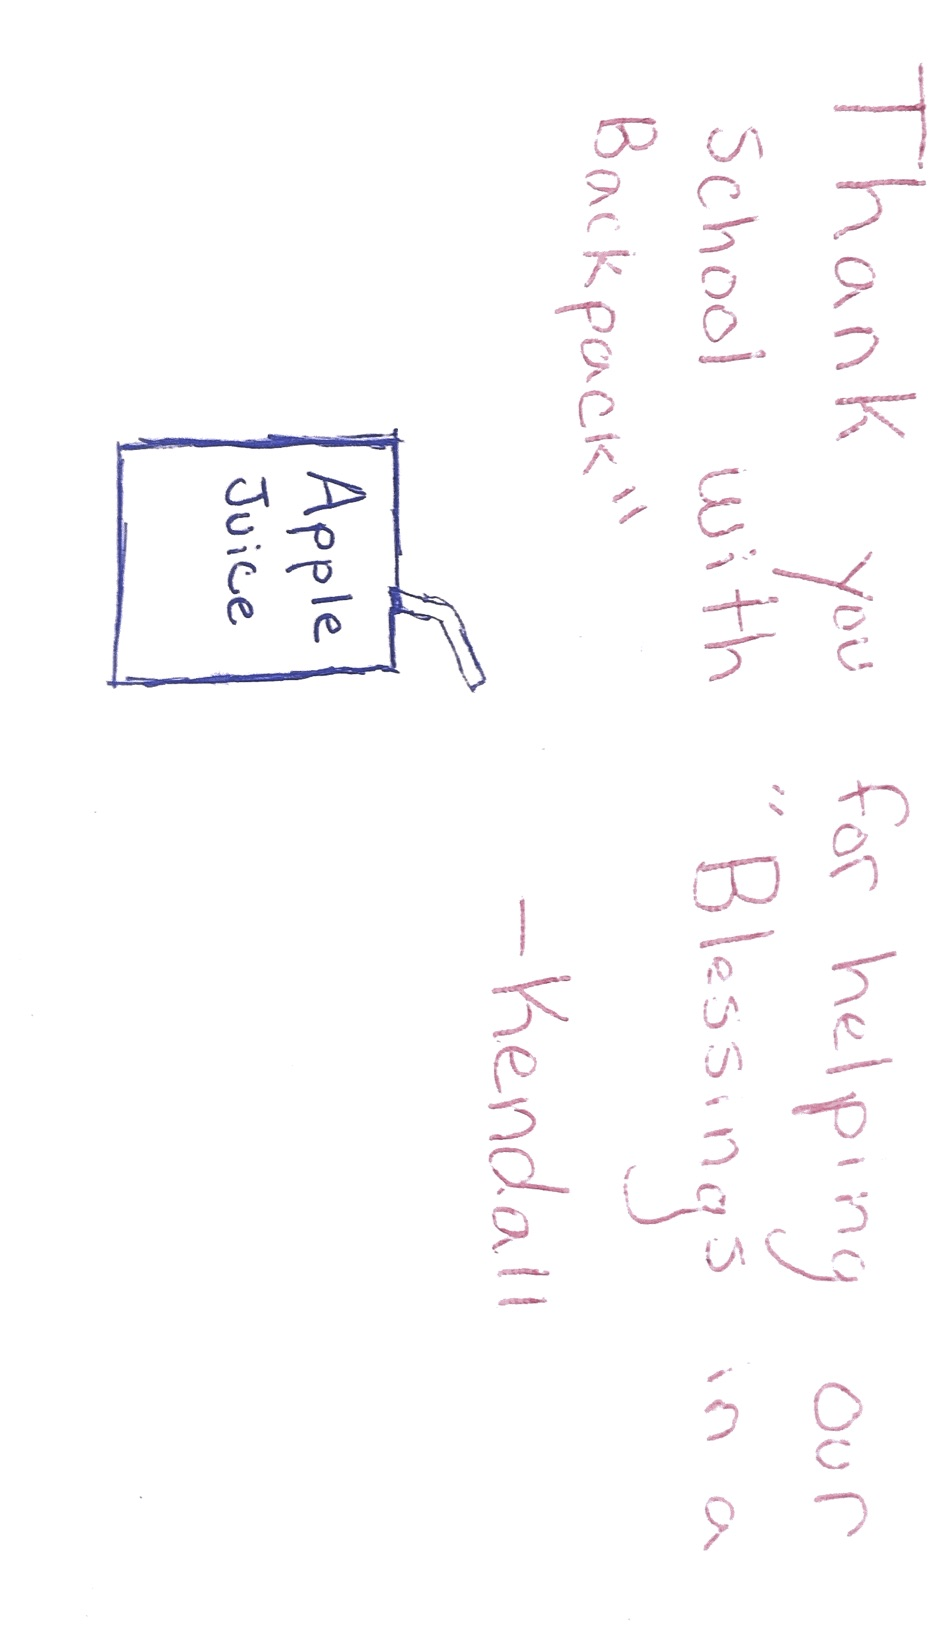 Thank you for helping our
School with "Blessings in a
Backpack"
-Kendall
Apple
Juice